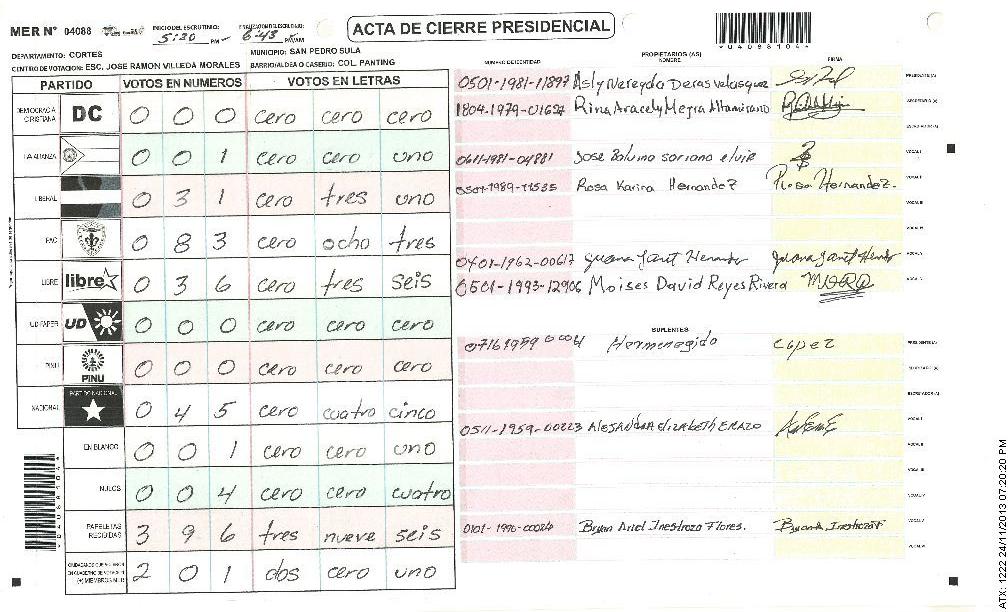 MER N° 04088
INICIO DEL ESCRUTINIO: 5:30 PM
6:43 PM/AM
ACTA DE CIERRE PRESIDENCIAL
*04088104*
DEPARTAMENTO: CORTES
MUNICIPIO: SAN PEDRO SULA
CENTRO DE VOTACION: ESC. JOSE RAMON VILLEDA MORALES
BARRIO/ALDEA O CASERIO: COL PANTING
PARTIDO VOTOS EN NUMEROS VOTOS EN LETRAS
DEMOCRACIA CRISTIANA DC 0 0 0 cero cero cero
LA ALIANZA 0 0 1 cero cero uno
LIBERAL 0 3 1 cero tres uno
PAC 0 8 3 cero ocho tres
LIBRE libre 0 3 6 cero tres seis
UD FAPER UD 0 0 0 cero cero cero
PINU PINU 0 0 0 cero cero cero
NACIONAL PARTIDO NACIONAL 0 4 5 cero cuatro cinco
EN BLANCO 0 0 1 cero cero uno
NULOS 0 0 4 cero cero cuatro
PAPELETAS RECIBIDAS 3 9 6 tres nueve seis
CIUDADANOS QUE VOTARON EN CUADERNO DE VOTACION (+) MIEMBROS MER 2 0 1 dos cero uno
*04088104*
NUMERO DE IDENTIDAD
PROPIETARIOS (AS)
NOMBRE
FIRMA
0501-1981-11897 Asly Nereyda Deras Velasquez PRESIDENTE (A)
1804-1979-01627 Rina Aracely Mejra Altamirano SECRETARIO (A)
ESCRUTADOR (A)
0611-1981-04881 VOCAL I
0501-1989-11535 Rosa Karina Hernandez Rosa Hernandez. VOCAL II
VOCAL III
VOCAL IV
0401-1962-00617 VOCAL V
0501-1993-12906 Moises David Reyes Rivera
SUPLENTES
Hermenegido Lopez PRESIDENTE (A)
SECRETARIO (A)
ESCRUTADOR (A)
0511-1959-00223 ALEJANDRA ELIZABETH ERAZO VOCAL I
VOCAL II
VOCAL III
VOCAL IV
Bryan Ariel Inestroza Flores. VOCAL V
VOCAL VI
ATX: 1222 24/11/2013 07:20:20 PM